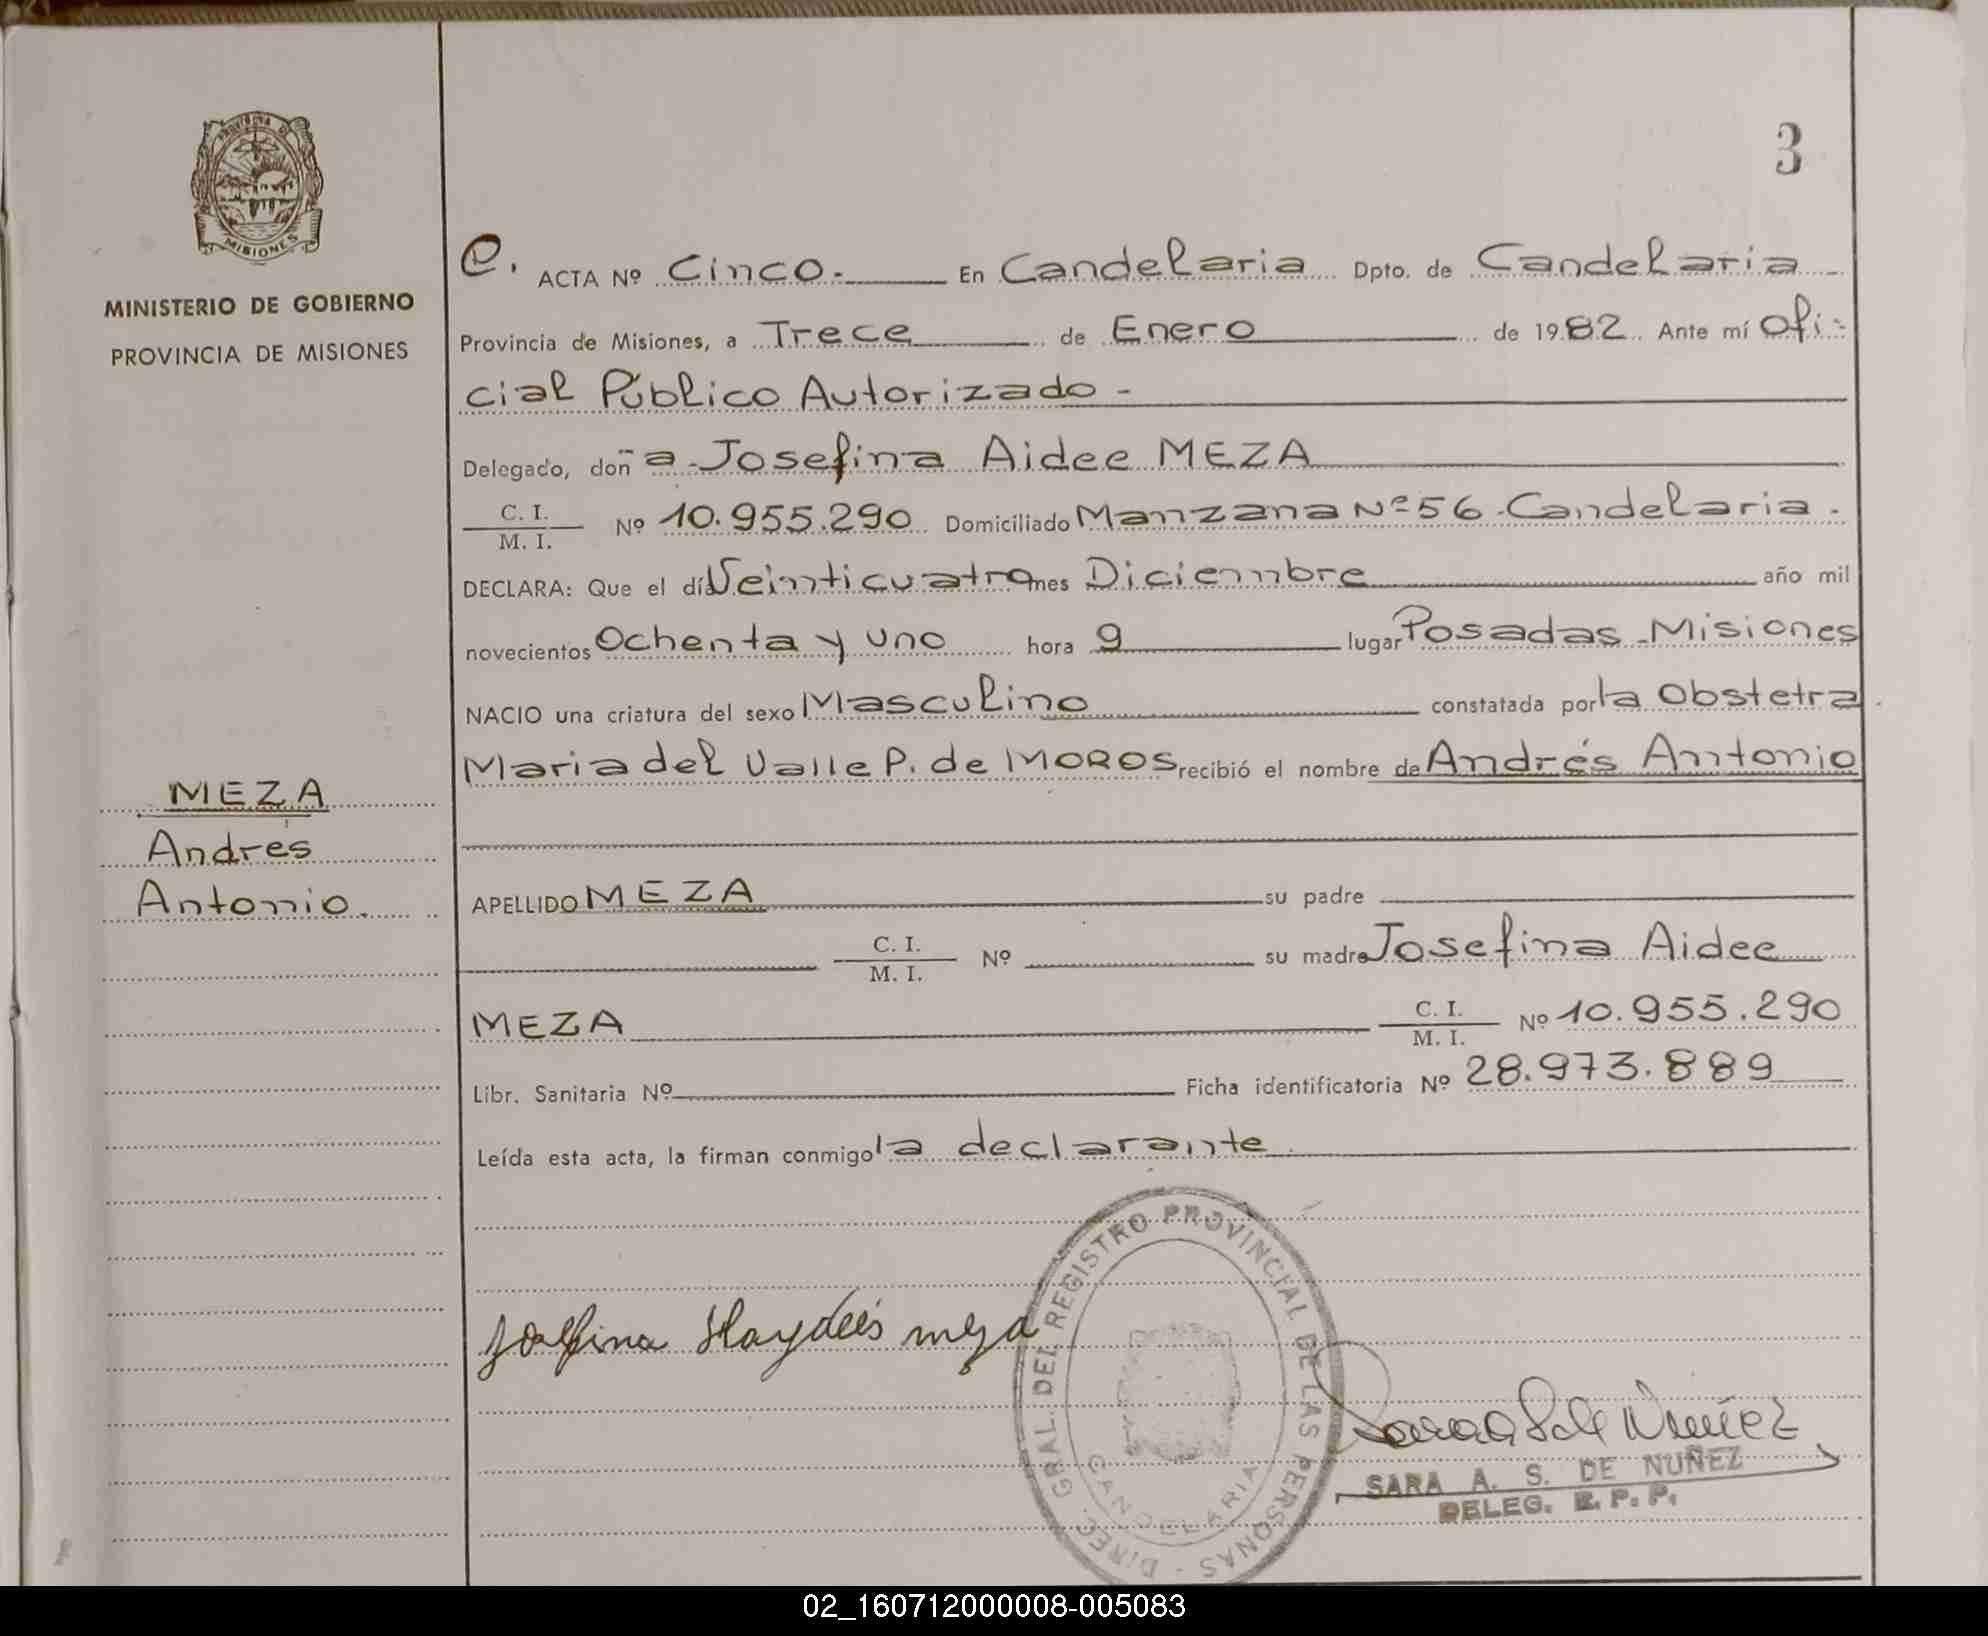 PROVINCIA DE
MISIONES
MINISTERIO DE GOBIERNO
PROVINCIA DE MISIONES
MEZA
Andrés
Antonio.
3
C. ACTA Nº Cinco.- En Candelaria Dpto. de Candelaria -
Provincia de Misiones, a Trece de Enero de 1982. Ante mí Ofi-
cial Público Autorizado -
Delegado, doña Josefina Aidee MEZA
C. I.
M. I. Nº 10.955.290 Domiciliado Manzana Nº 56.Candelaria.
DECLARA: Que el día Veinticuatro mes Diciembre año mil
novecientos Ochenta y uno hora 9 lugar Posadas-Misiones
NACIO una criatura del sexo Masculino constatada por la Obstetra
Maria del Valle P. de MOROS recibió el nombre de Andrés Antonio
APELLIDO MEZA su padre
C. I.
M. I. Nº su madre Josefina Aidee
MEZA C. I.
M. I. Nº 10.955.290
Libr. Sanitaria Nº Ficha identificatoria Nº 28.973.889
Leída esta acta, la firman conmigo la declarante
Josefina Haydeés meza
DIREC. GRAL. DEL REGISTRO PROVINCIAL DE LAS PERSONAS -
CANDELARIA
Sara S de Nuñez
SARA A. S. DE NUÑEZ
DELEG. R. P. P.
02_160712000008-005083